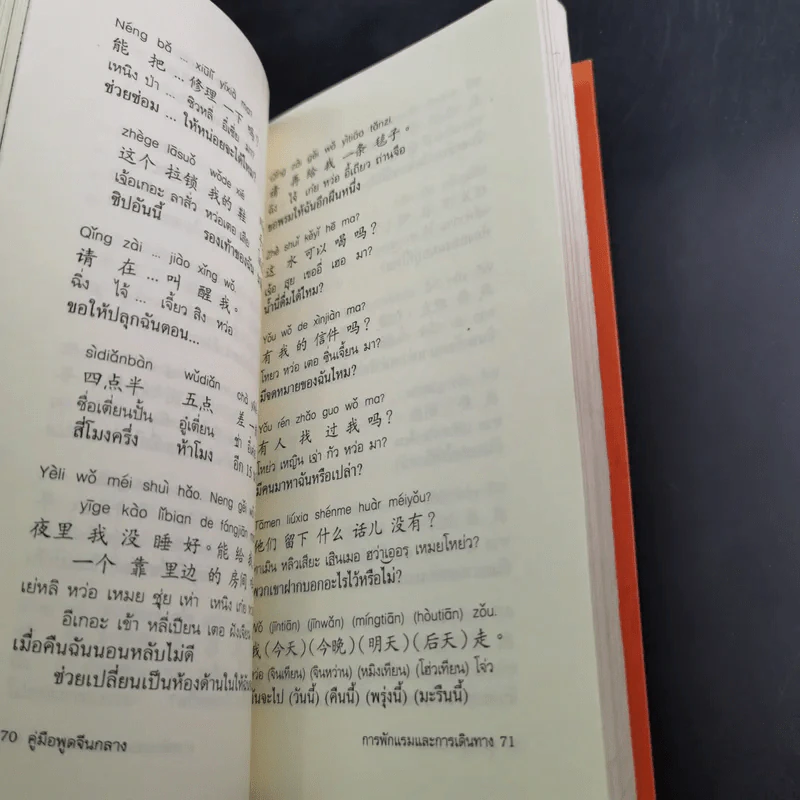 Néng bǎ ... xiūlǐ yíxià ma?
能 把 ... 修理 一 下 吗?
เหนิง ป่า ... ซิวหลี่ อี๋เซี่ย มา?
ช่วยซ่อม ... ให้หน่อยจะได้ไหม?
zhège lāsuǒ wǒde xié
这个 拉锁 我的 鞋
เจ้อเกอะ ลาสั่ว หว่อเตอ เสีย
ซิปอันนี้ รองเท้าของฉัน
Qǐng zài ... jiào xǐng wǒ.
请 在 ... 叫 醒 我。
ฉิ่ง ไจ้ ... เจี้ยว สิง หว่อ
ขอให้ปลุกฉันตอน...
sìdiǎnbàn wǔdiǎn chà
四点半 五点 差一
ซื่อเตี่ยนปั้น อู๋เตี่ยน ช่า
สี่โมงครึ่ง ห้าโมง อีก 15
Yèli wǒ méi shuì hǎo. Neng gěi
yīge kào lǐbian de fángjiān
夜里 我 没 睡 好。能 给
一个 靠 里边 的 房间
เย่หลิ หว่อ เหมย ซุ่ย เห่า เหนิง เก่ย
อีเกอะ เข้า หลี่เปียน เตอ ฝังเจียน
เมื่อคืนฉันนอนหลับไม่ดี
ช่วยเปลี่ยนเป็นห้องด้านในให้ฉัน
70 คู่มือพูดจีนกลาง
qǐng zài gěi wǒ yītiáo tǎnzi.
请 再 给 我 一条 毯子。
ฉิ่ง ไจ้ เก่ย หว่อ อี้เถียว ถ่านจือ
ขอพรมให้ฉันอีกผืนหนึ่ง
Zhè shuǐ kěyǐ hē ma?
这 水 可以 喝 吗?
เจ้อ สุ่ย เขออี่ เฮอ มา?
น้ำนี่ดื่มได้ไหม?
Yǒu wǒ de xìnjiàn ma?
有 我 的 信件 吗?
โหยว หว่อ เตอ ซิ่นเจี้ยน มา?
มีจดหมายของฉันไหม?
Yǒu rén zhǎo guo wǒ ma?
有 人 找 过 我 吗?
โหย่ว เหญิน เจ่า กัว หว่อ มา?
มีคนมาหาฉันหรือเปล่า?
Tāmen liúxia shénme huàr méiyǒu?
他们 留下 什么 话儿 没有?
ทาเมิน หลิวเสียะ เสินเมอ ฮว่าเออรฺ เหมยโหย่ว?
พวกเขาฝากบอกอะไรไว้หรือไม่?
Wǒ (jīntiān) (jīnwǎn) (míngtiān) (hòutiān) zǒu.
我(今天)(今晚)(明天)(后天)走。
หว่อ (จินเทียน) (จินหว่าน) (หมิงเทียน) (โฮ่วเทียน) โจ่ว
ฉันจะไป (วันนี้) (คืนนี้) (พรุ่งนี้) (มะรืนนี้)
การพักแรมและการเดินทาง 71